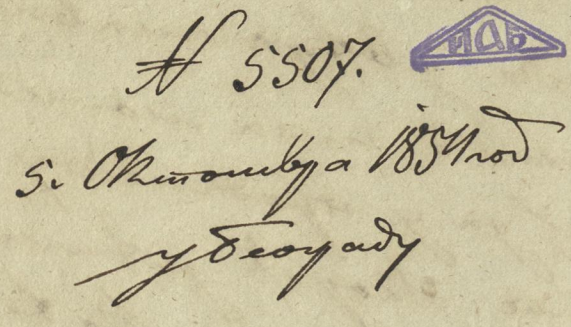 № 5507.
ИАБ
5. Октомвра 1854 год
у Београду